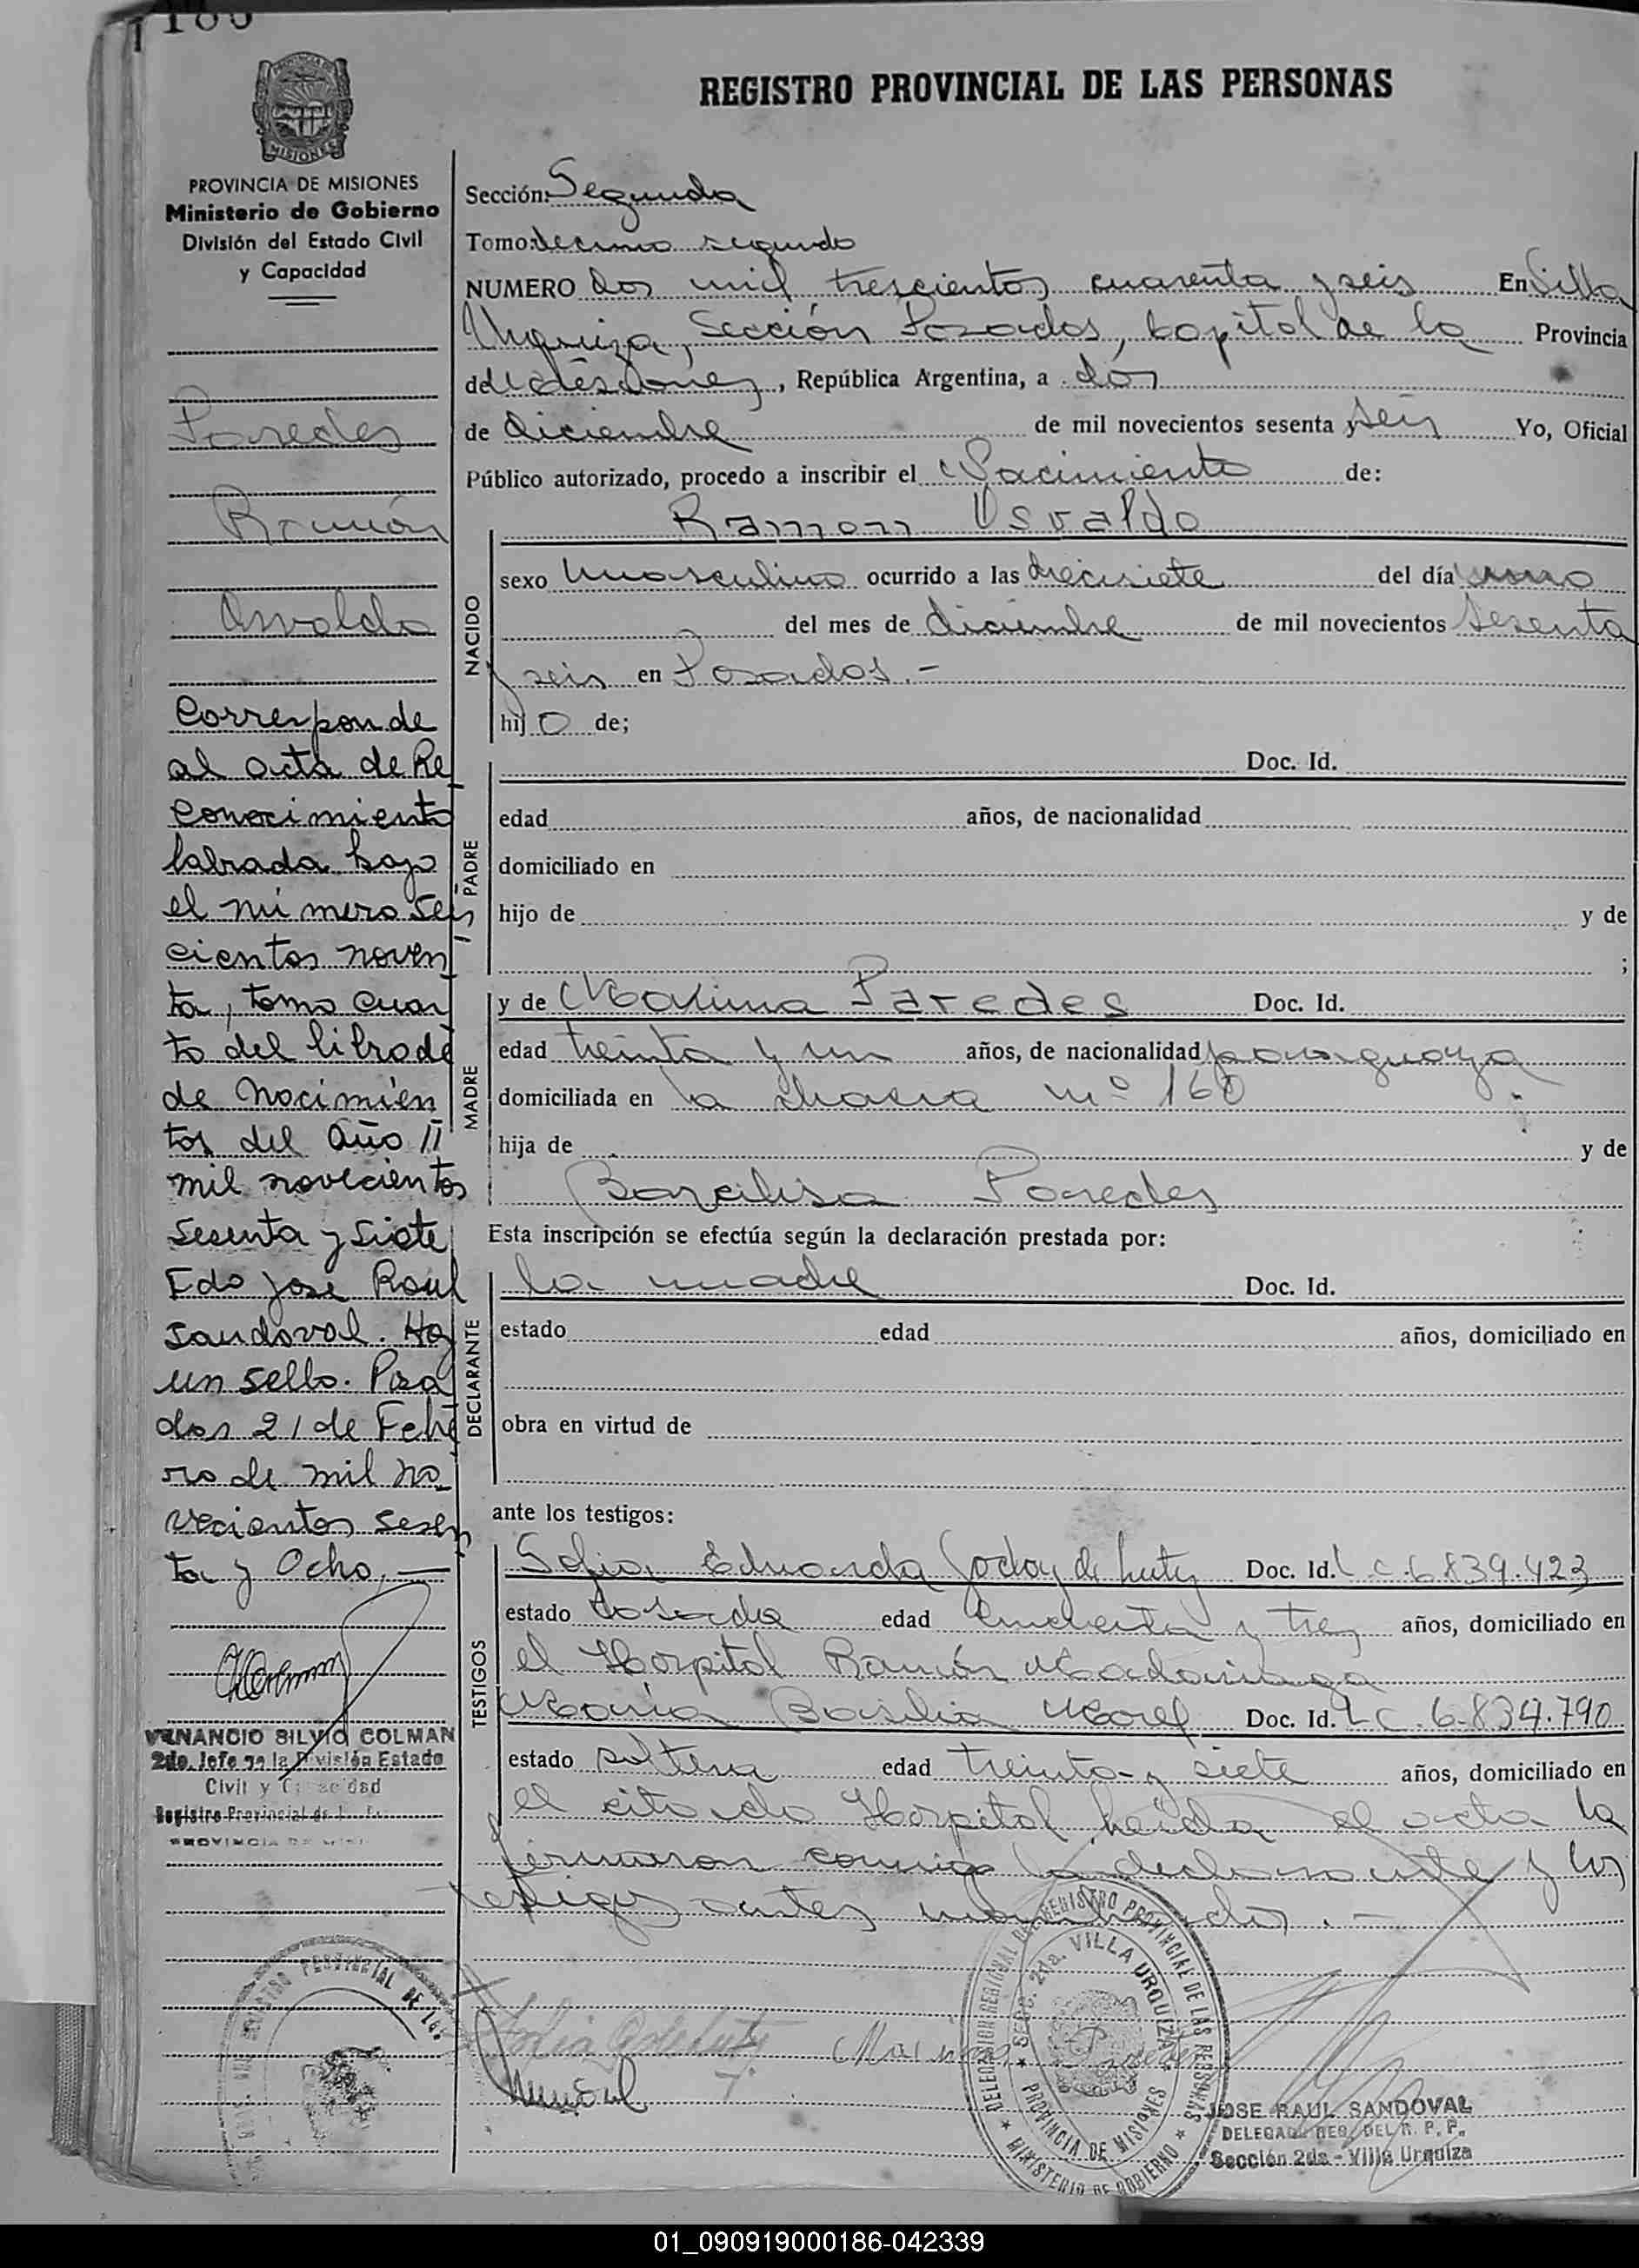 REGISTRO PROVINCIAL DE LAS PERSONAS
MISIONES
PROVINCIA DE MISIONES
Ministerio de Gobierno
División del Estado Civil
y Capacidad
Paredes
Ramón
Osvaldo
Corresponde
al acta de Re
conocimiento
labrada bajo
el número seis
cientos noven
ta, tomo cuar
to del libro de
de Nacimien
tos del año
mil novecientos
sesenta y siete
Fdo José Raúl
Sandoval. Hay
un sello. Posa
das 21 de Febre
ro de mil no
vecientos sesen
ta y Ocho.
VENANCIO SILVIO COLMAN
2do. Jefe de la División Estado
Civil y Capacidad
Registro Provincial de
PROVINCIA DE
Sección: Segunda
Tomo: decimo segundo
NUMERO dos mil trescientos cuarenta y seis En Villa
Urquiza, Sección Posadas, Capital de la Provincia
de Misiones, República Argentina, a dos
de diciembre de mil novecientos sesenta y seis Yo, Oficial
Público autorizado, procedo a inscribir el Nacimiento de:
Ramon Osvaldo
NACIDO
sexo masculino ocurrido a las diecisiete del día uno
del mes de diciembre de mil novecientos sesenta
y seis en Posadas.-
hijo de;
PADRE
Doc. Id.
edad años, de nacionalidad
domiciliado en
hijo de y de
;
MADRE
y de Maxima Paredes Doc. Id.
edad treinta y un años, de nacionalidad paraguaya
domiciliada en la chacra nº 160
hija de y de
Paredes
Esta inscripción se efectúa según la declaración prestada por:
DECLARANTE
la madre Doc. Id.
estado edad años, domiciliado en
obra en virtud de
ante los testigos:
TESTIGOS
Sofia Eduarda Godoy de Doc. Id. L C 6.839.423
estado casada edad cincuenta y tres años, domiciliado en
el Hospital Ramón Madariaga
María Basilia Morel Doc. Id. L C. 6.834.790
estado soltera edad treinta y siete años, domiciliado en
el citado Hospital leída el acta la
firmaron conmigo la declarante y los
testigos antes nombrados.-
REGISTRO PROVINCIAL DE LAS
DELEGACION REGIONAL REGISTRO PROVINCIAL DE LAS PERSONAS
SECC. 2da. VILLA URQUIZA
PROVINCIA DE MISIONES
MINISTERIO DE GOBIERNO
JOSE RAUL SANDOVAL
DELEGADO REG. DEL R. P. P.
Sección 2da - Villa Urquiza
01_090919000186-042339